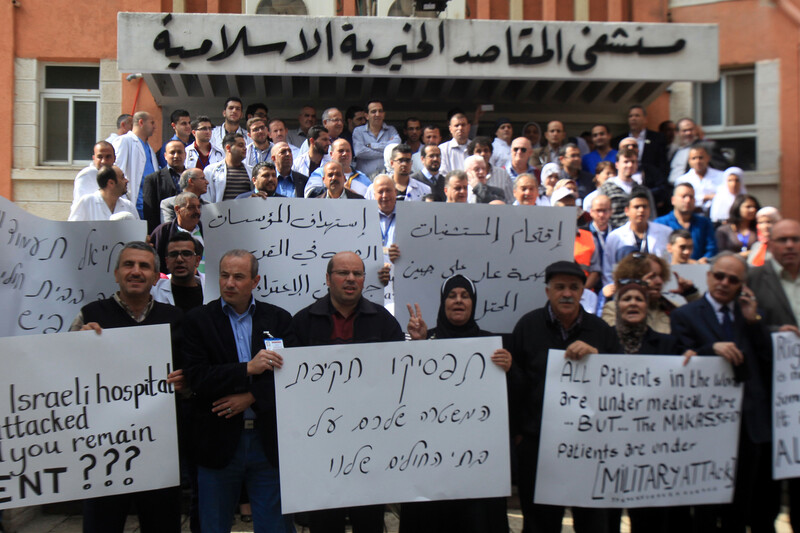 مستشفى المقاصد الخيرية الاسلامية
תעמודו
בית חולי
استهداف المؤسسات
الصحية في القدس
اقتحام المستشفيات
وصمة عار على جبين
المحتل
Israeli hospital
attacked
you remain
ENT ???
תפסיקו תקיפת
המשטרה שלכם על
בתי החולים שלנו
ALL Patients in the Wor
are under medical care
-- BUT... The MAKASSED
patients are under
[MILITARY ATTACK
is th
It i
AL